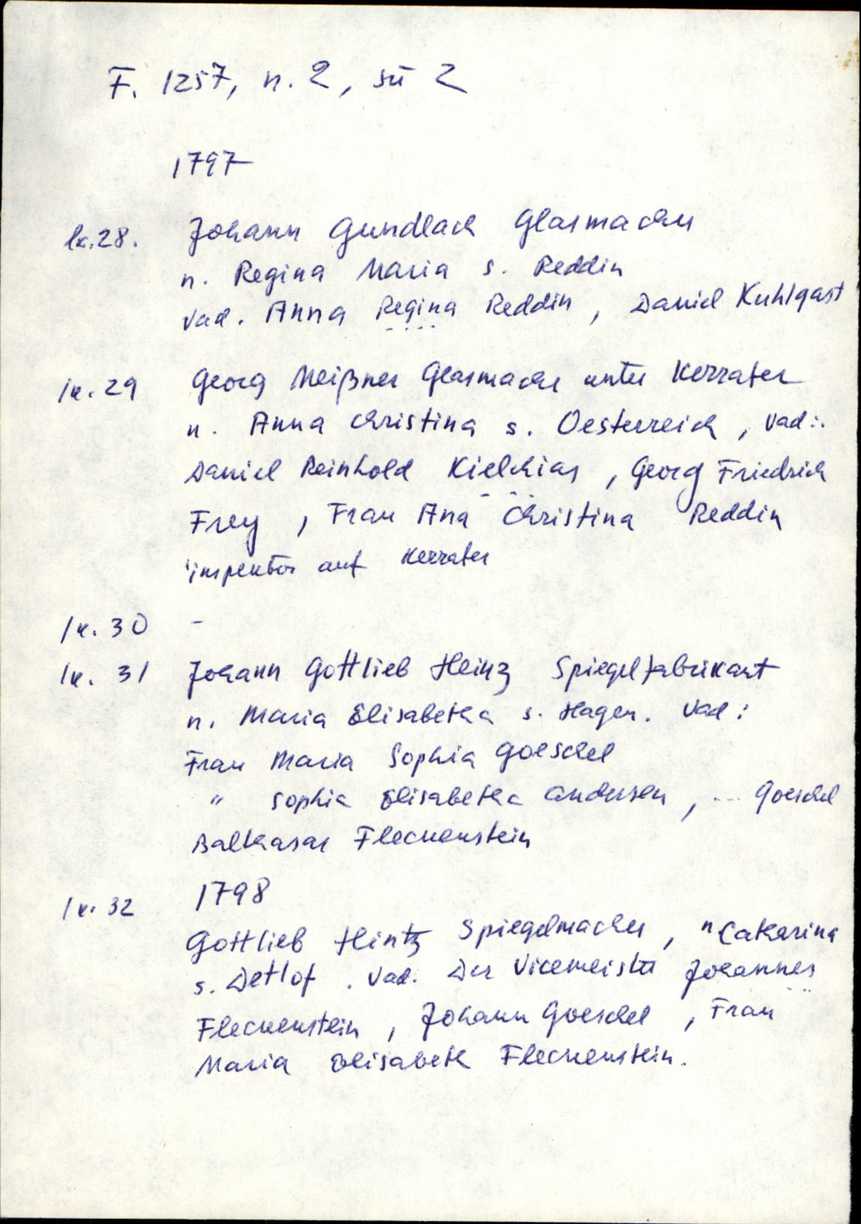 F. 1257, n. 2, sü 2
1797
lk. 28. Johann Gundlach Glasmacher
n. Regina Maria s. Reddin
Vad. Anna Regina Reddin, Daniel Kuhlgast
lk. 29 Georg Meißner Glasmacher unter Kerrafer
n. Anna Christina s. Oesterreich, Vad:.
Daniel Reinhold Kielchias, Georg Friedrich
Frey, Frau Ana Christina Reddin
inspektor auf Kerrafer
lk. 30 -
lk. 31 Johann Gottlieb Heinz Spiegelfabrikant
n. Maria Elisabetha s. Hagen. Vad:
Frau Maria Sophia Goeschel
" Sophia Elisabetha Andersen, ... Goeschel
Balthasar Fleckenstein
lk. 32 1798
Gottlieb Hintz Spiegelmacher, n Catharina
s. Detlof. Vad. Der Vicemeister Johannes
Fleckenstein, Johann Goeschel, Frau
Maria Elisabeth Fleckenstein.